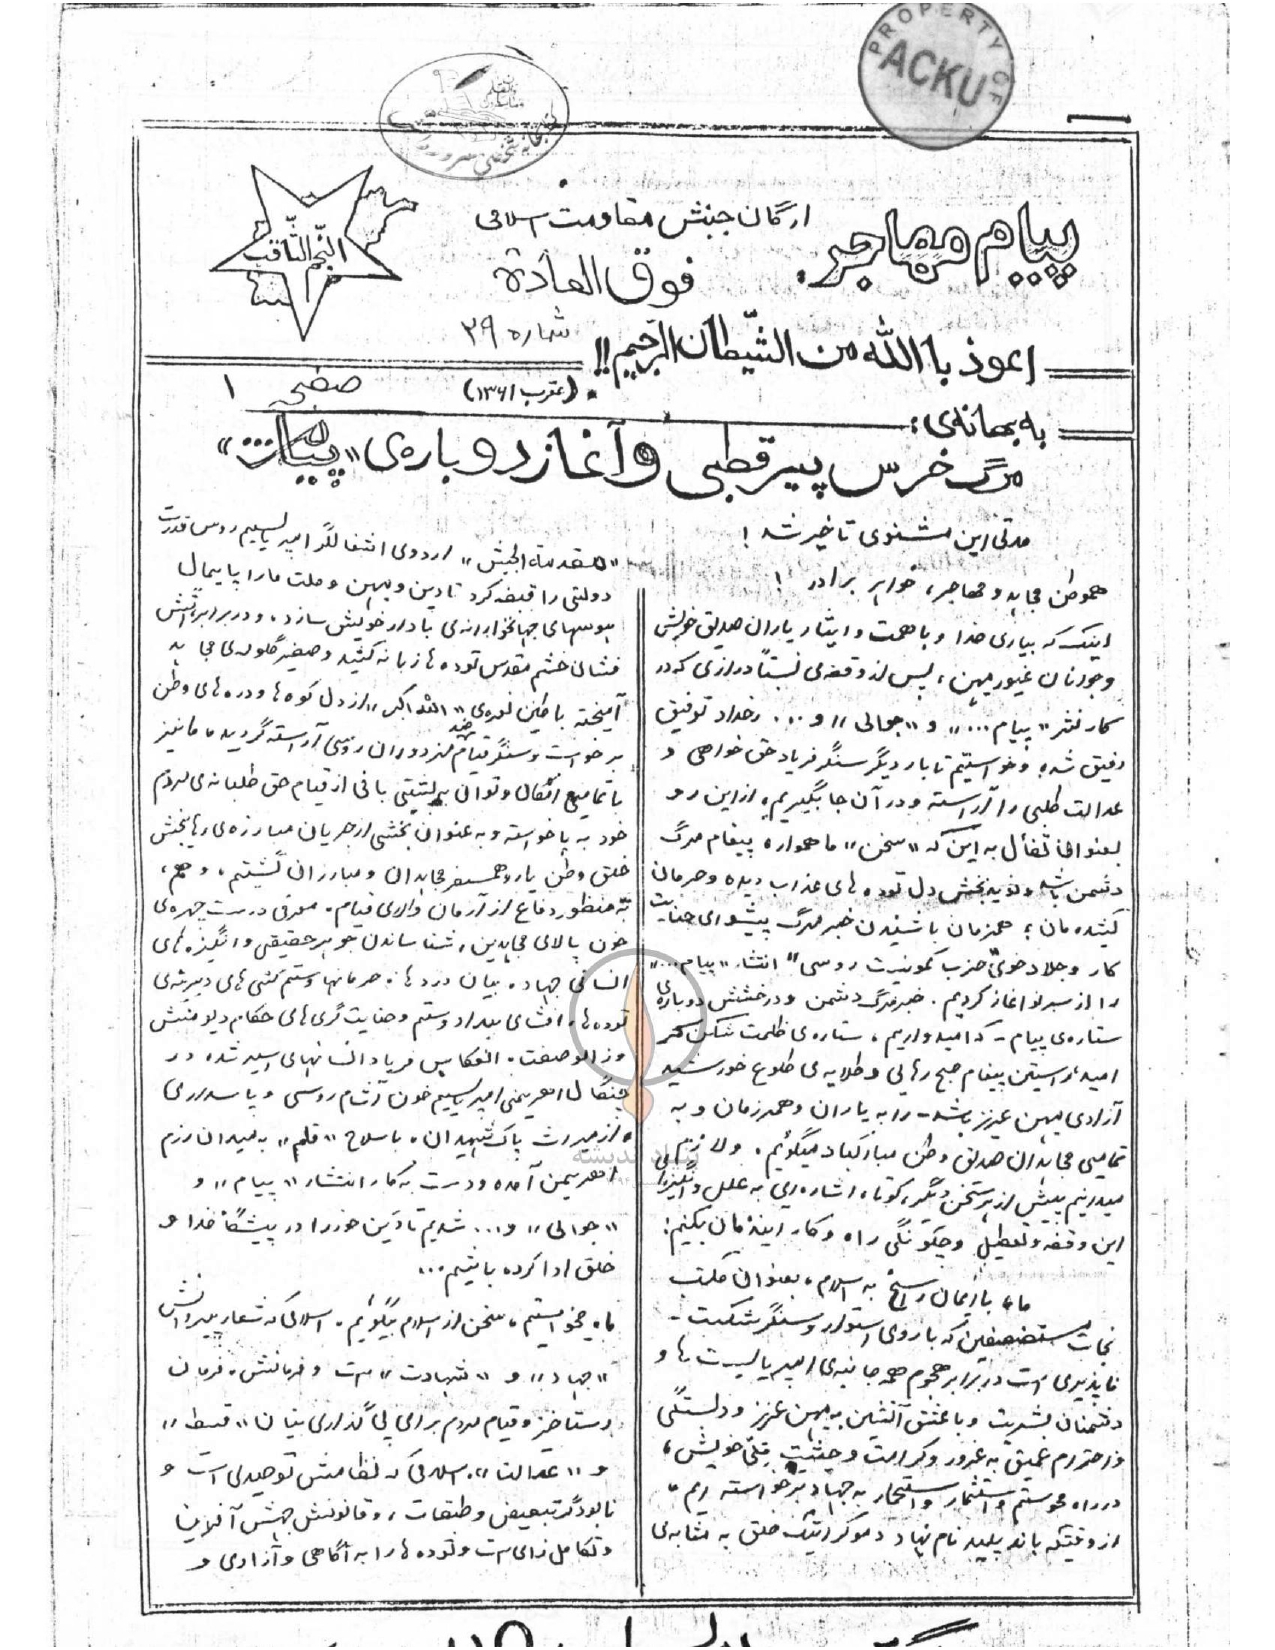 PROPERTY OF
ACKU
النّجم الثّاقب
پیام مهاجر
ارگان جنبش مقاومت اسلامی
فوق العادة
شماره ۳۹
اعوذ باالله من الشّیطان الرّجیم!!
(عقرب ۱۳۶۱)
صفحه ۱
به بهانه‌ی:
مرگ خرس پیر قطبی و آغاز دوباره‌ی «پیام...»
مدتی این مثنوی تاخیر شد!
هموطن مجاهد و مهاجر، خواهر برادر!
اینک که بیاری خدا و با همت و ایثار یاران صدیق خویش
و جوانان غیور میهن، پس از وقفه‌ی نسبتاً درازی که در
کار نشر «پیام...» و «جوالی» و... رخداد توفیق
رفیق شد، و خواستیم تا بار دیگر سنگر فریاد حق خواهی و
عدالت طلبی را آراسته و در آن جا بگیریم، از این رو
بعنوان تفأل به این که «سخن» ما همواره پیغام مرگ
دشمن باشد و نوید بخش دل توده های عذاب دیده و حرمان
کشیده مان؛ همزمان با شنیدن خبر مرگ پیشوای جنایت
کار و جلاد خوی حزب کمونیست روسی، انتشار «پیام...»
را از سر نو آغاز کردیم. خبر مرگ دشمن و درخشش دوباره‌ی
ستاره‌ی پیام - که امیدواریم، ستاره‌ی ظلمت شکن
امید راستین پیغام صبح رهایی و طلایه‌ی طلوع خورشید
آزادی میهن عزیز باشد - را به یاران و همرزمان و به
تمامی مجاهدان صدیق وطن مبارکباد میگوئیم. و لازم
میدانیم پیش از هر سخن دیگر، کوتاه اشاره‌ای به علل و انگیزه‌ای
این وقفه و تعطیل و چگونگی راه و کار اینده مان بکنیم:
ما، با ایمان راسخ به اسلام، بعنوان مکتب
نجات مستضعفین که باروی استوار و سنگر شکست -
ناپذیری است در برابر هجوم همه جانبه‌ی امپریالیست ها و
دشمنان بشریت و با عشق آتشین به میهن عزیز و دلبستگی
و احترام عمیق به غرور و کرامت و حیثیت ملی خویش،
در راه محو ستم و استثمار و استحمار به جهاد برخواسته ایم.
از وقتیکه باند پلید نام نهاد دموکراتیک خلق به مثابه‌ی
«مقدمة الجیش» اردوی اشغالگر امپریالیسم روس قدرت
دولتی را قبضه کرد تا دین و میهن و ملت ما را پایمال
هوسهای جهانخوارانه‌ی بادار خویش سازد، و در برابر آتش
فشان خشم مقدس توده ها زبانه کشید و صفیر گلوله‌ی مجاهد
آمیخته با طنین نعره‌ی «الله اکبر» از دل کوه ها و دره های وطن
برخواست و سنگر قیام ضد مزدوران روسی آراسته گردید، ما نیز
با تمامی امکان و توان به پشتیبانی از قیام حق طلبانه‌ی مردم
خود به پا خواسته و به عنوان بخشی از جریان مبارزه‌ی رهایبخش
خلق وطن یار و همسفر مجاهدان و مبارزان گشتیم، و هم،
به منظور دفاع از آرمان والای قیام، معرفی درست چهره‌ی
خون پالای مجاهدین، شناساندن جوهر حقیقی و انگیزه های
انسانی جهاد، بیان درد ها، حرمانها و ستم کشی های دیرینه‌ی
توده ها، افشای بیداد و ستم و جنایت گری های حکام دیو منش
و زالو صفت، انعکاس فریاد انسانهای اسیر شده در
چنگال اهریمنی امپریالیسم خون آشام روسی و پاسداری
از میراث پاک شهیدان، با سلاح «قلم» به میدان رزم
اهریمن آمده و دست به کار انتشار «پیام» و
«جوالی» و... شدیم تا دَین خود را در پیشگاه خدا و
خلق ادا کرده باشیم...
ما، میخواستیم، سخن از اسلام بگوئیم. اسلامی که شعار پیروانش
«جهاد» و «شهادت» است و فرمانش، فرمان
رستاخیز و قیام مردم برای پی گذاری بنیان «قسط»
و «عدالت». اسلامی که نظامش توحیدی است و
نابودگر تبعیض و طبقات، و قانونش جنبش آفرین
و تکامل زای است و توده ها را به آگاهی و آزادی و